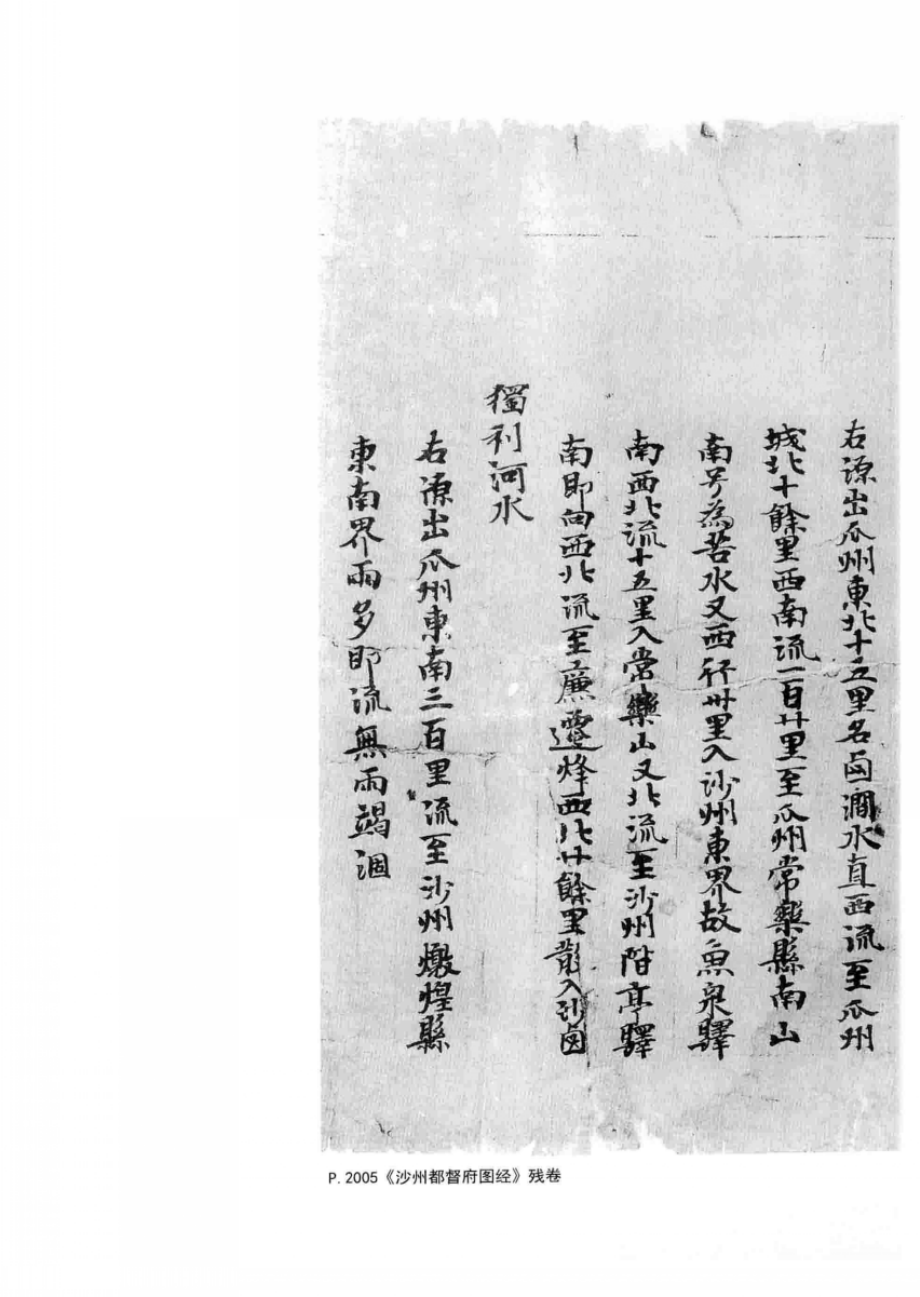 右源出瓜州東北十五里名鹵澗水直西流至瓜州
城北十餘里西南流一百廿里至瓜州常樂縣南山
南号為苦水又西行卅里入沙州東界故魚泉驛
南西北流十五里入常樂山又北流至沙州階亭驛
南即向西北流至廉遷烽西北廿餘里散入沙鹵
獨利河水
右源出瓜州東南三百里流至沙州燉煌縣
東南界雨多即流無雨竭涸
P. 2005《沙州都督府图经》残卷